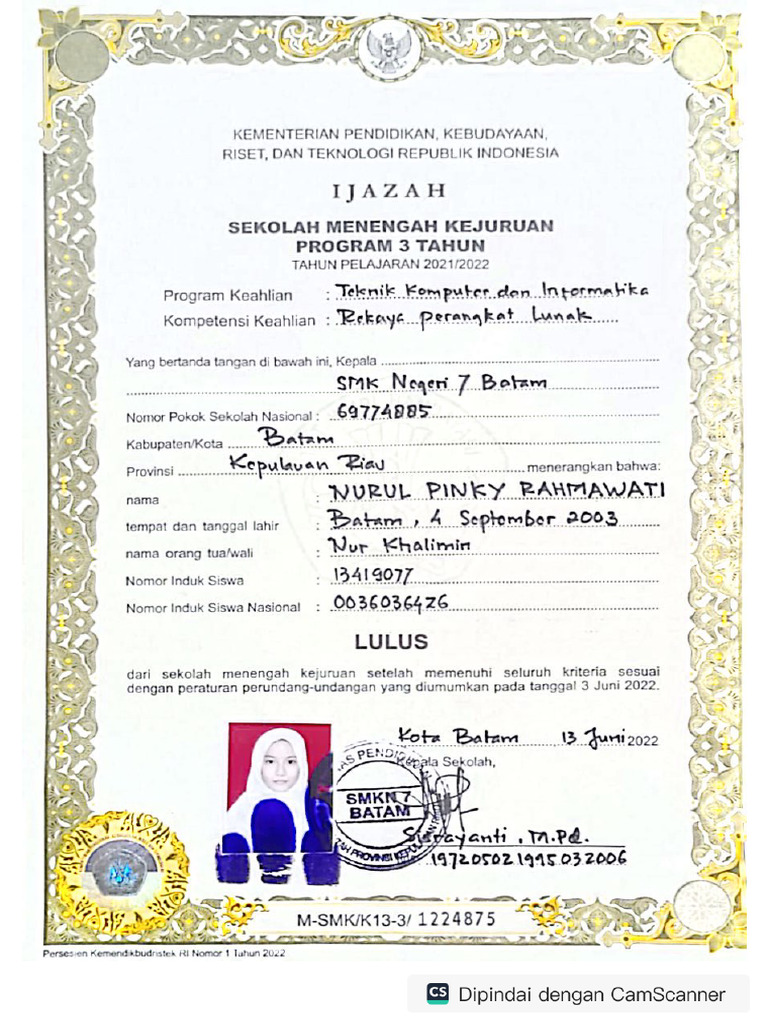 KEMENTERIAN PENDIDIKAN, KEBUDAYAAN,
RISET, DAN TEKNOLOGI REPUBLIK INDONESIA
IJAZAH
SEKOLAH MENENGAH KEJURUAN
PROGRAM 3 TAHUN
TAHUN PELAJARAN 2021/2022
Program Keahlian : Teknik Komputer dan Informatika
Kompetensi Keahlian : Rekaya Perangkat Lunak
Yang bertanda tangan di bawah ini, Kepala
SMK Negeri 7 Batam
Nomor Pokok Sekolah Nasional : 69774885
Kabupaten/Kota Batam
Provinsi Kepulauan Riau menerangkan bahwa:
nama : NURUL PINKY RAHMAWATI
tempat dan tanggal lahir : Batam, 4 September 2003
nama orang tua/wali : Nur Khalimin
Nomor Induk Siswa : 13419077
Nomor Induk Siswa Nasional : 0036036426
LULUS
dari sekolah menengah kejuruan setelah memenuhi seluruh kriteria sesuai
dengan peraturan perundang-undangan yang diumumkan pada tanggal 3 Juni 2022.
Kota Batam 13 Juni 2022
Kepala Sekolah,
SMKN 7
BATAM
M.Pd.
197205021995032006
M-SMK/K13-3/ 1224875
Persesjen Kemendikbudristek RI Nomor 1 Tahun 2022
CS Dipindai dengan CamScanner